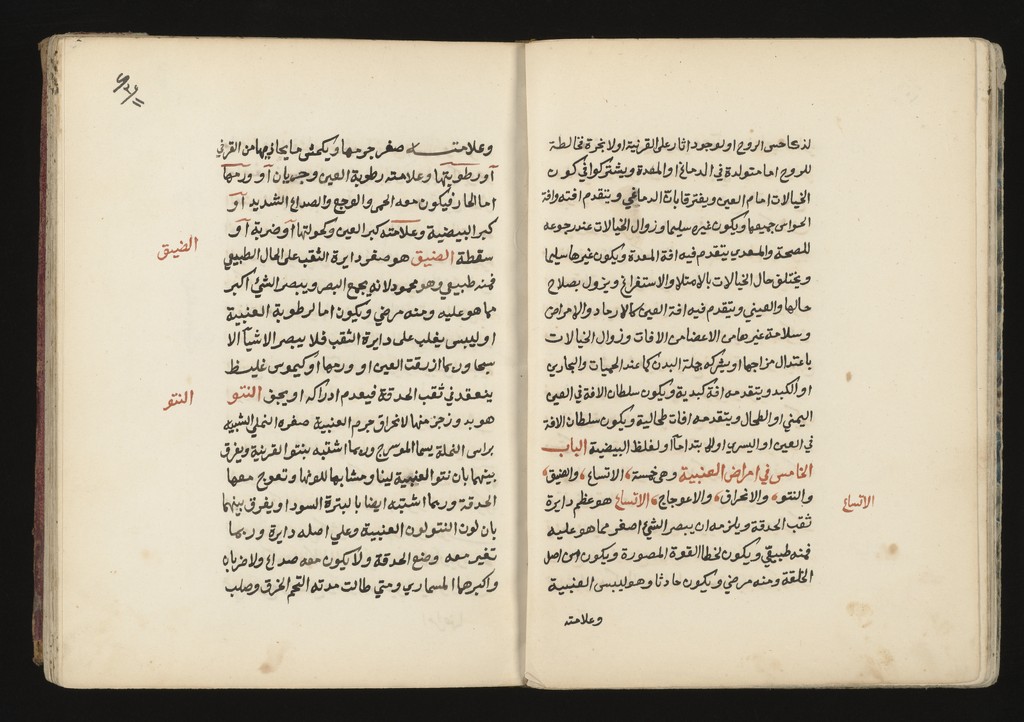 لذكاحس الروح او لوجود اثار على القرنية او لابخرة مخالطة
للروح اما متولدة في الدماغ او المعدة ويشتركوا في كون
الخيالات امام العين ويفترقا بان الدماغي ويتقدم افته وافة
الحواس جميعها ويكون غيره سليما وزوال الخيالات عند رجوعه
للصحة والمعدي يتقدم فيه افة المعدة ويكون غيرها سليما
ويختلق حال الخيالات بالامتلاء والاستفراغ ويزول بصلاح
حالها والعيني ويتقدم فيه افة العين كالارماد والامراض
وسلامة غيرها من الاعضا من الافات وزوال الخيالات
باعتدال مزاجها او يشركه جملة البدن كما عند الحميات والبحارين
او الكبد ويتقدمه افة كبدية ويكون سلطان الافة في العين
اليمني او الطحال ويتقدمه افات طحالية ويكون سلطان الافة
في العين او اليسري اولا بتداءآ او لغلظ البيضية الباب
الخامس في امراض العنبية وهي خمسة الاتساع والضيق
والنتو والانخراق والاعوجاج الاتساع هو عظم دايرة
الاتساع
ثقب الحدقة ويلزمه ان يبصر الشئ اصغر مما هو عليه
فمنه طبيعي ويكون لخطا القوة المصورة ويكون من اصل
الخلقة ومنه مرضي ويكون حادثا وهو ليبس العنبية
وعلامته
وعلامته صغر جرمها ويكمش ما يحاذيها من القرني
او رطوبتها وعلامته رطوبة العين وجريان او ورمها
اما الحار فيكون معه الحمى والوجع والصداع الشديد او
كبر البيضية وعلامته كبر العين وكحولتها او ضربة او
سقطة الضيق هو صغر دايرة الثقب على الحال الطبيعي
الضيق
فمنه طبيعي وهو محمود لانه يجمع البصر ويبصر الشئ اكبر
مما هو عليه ومنه مرضي ويكون اما لرطوبة العنبية
او ليبس يغلب على دايرة الثقب فلا يبصر الاشيآ الا
سيما وربما ازرقت العين او ورمها او كيموس غليظ
ينعقد في ثقب الحدقة فيعدم ادراكه او يجف النتو
النتو
هو بروز جزء منها لانخراق جرم العنبية صغره النملي الشبيه
براس النملة يسما الموسرج وربما اشتبه بنتو القرنية ويفرق
بينهما بان نتو العنبية لينا ومشابها للونها وتعوج معها
الحدقة وربما اشتبه ايضا بالبثرة السودا ويفرق بينهما
بان لون النتو لون العنبية وعلي اصله دايرة وربما
تغير معه وضع الحدقة ولا يكون معه صداع ولا ضربان
واكبرهما المسماري ومتي طالت مدته التحم الخرق وصلب